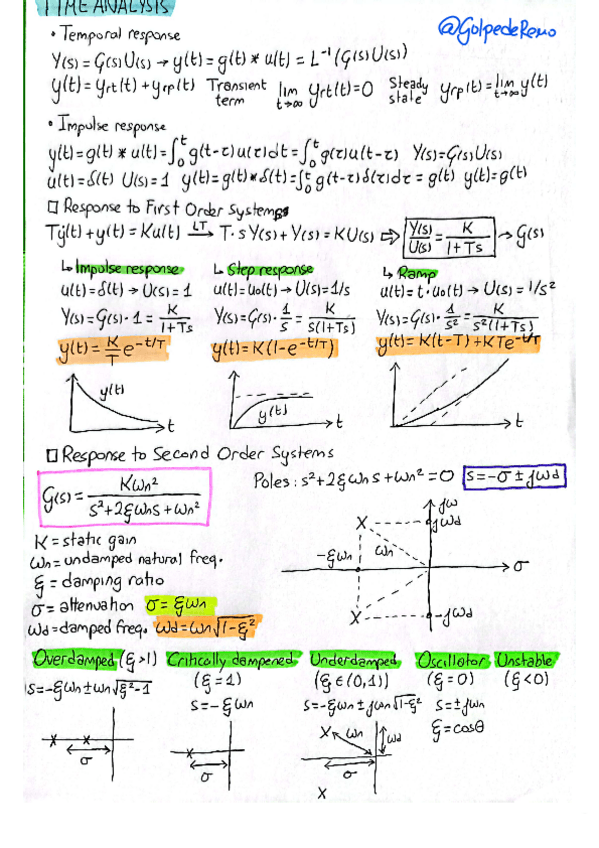 TIME ANALYSIS
@GolpedeRemo
• Temporal response
Y(s)=G(s)U(s) → y(t)=g(t)*u(t)=L⁻¹(G(s)U(s))
y(t)=yrt(t)+yrp(t) Transient term lim t→∞ yrt(t)=0 Steady state yrp(t)=lim t→∞ y(t)
• Impulse response
y(t)=g(t)*u(t)=∫₀ᵗ g(t-τ)u(τ)dτ=∫₀ᵗ g(τ)u(t-τ) Y(s)=G(s)U(s)
u(t)=δ(t) U(s)=1 y(t)=g(t)*δ(t)=∫₀ᵗ g(t-τ)δ(τ)dτ=g(t) y(t)=g(t)
□ Response to First Order Systems
Tẏ(t)+y(t)=Ku(t) LT→ T·sY(s)+Y(s)=KU(s) ⇒ Y(s)/U(s)=K/(1+Ts) → G(s)
↳ Impulse response
u(t)=δ(t) → U(s)=1
Y(s)=G(s)·1=K/(1+Ts)
y(t)=K/T e^(-t/T)
y(t)
t
↳ Step response
u(t)=u₀(t) → U(s)=1/s
Y(s)=G(s)·1/s=K/(s(1+Ts))
y(t)=K(1-e^(-t/T))
y(t)
t
↳ Ramp
u(t)=t·u₀(t) → U(s)=1/s²
Y(s)=G(s)·1/s²=K/(s²(1+Ts))
y(t)=K(t-T)+KTe^(-t/T)
t
□ Response to Second Order Systems
G(s)=Kωn²/(s²+2ξωns+ωn²)
Poles: s²+2ξωns+ωn²=0 s=-σ±jωd
K=static gain
ωn=undamped natural freq.
ξ=damping ratio
σ=attenuation σ=ξωn
ωd=damped freq. ωd=ωn√(1-ξ²)
jω
X jωd
-ξωn ωn σ
X -jωd
Overdamped (ξ>1)
s=-ξωn±ωn√(ξ²-1)
X X
σ
Critically dampened
(ξ=1)
s=-ξωn
X
σ
Underdamped
(ξ∈(0,1))
s=-ξωn±jωn√(1-ξ²)
X ωn ωd
σ
X
Oscillator
(ξ=0)
s=±jωn
ξ=cosθ
Unstable
(ξ<0)